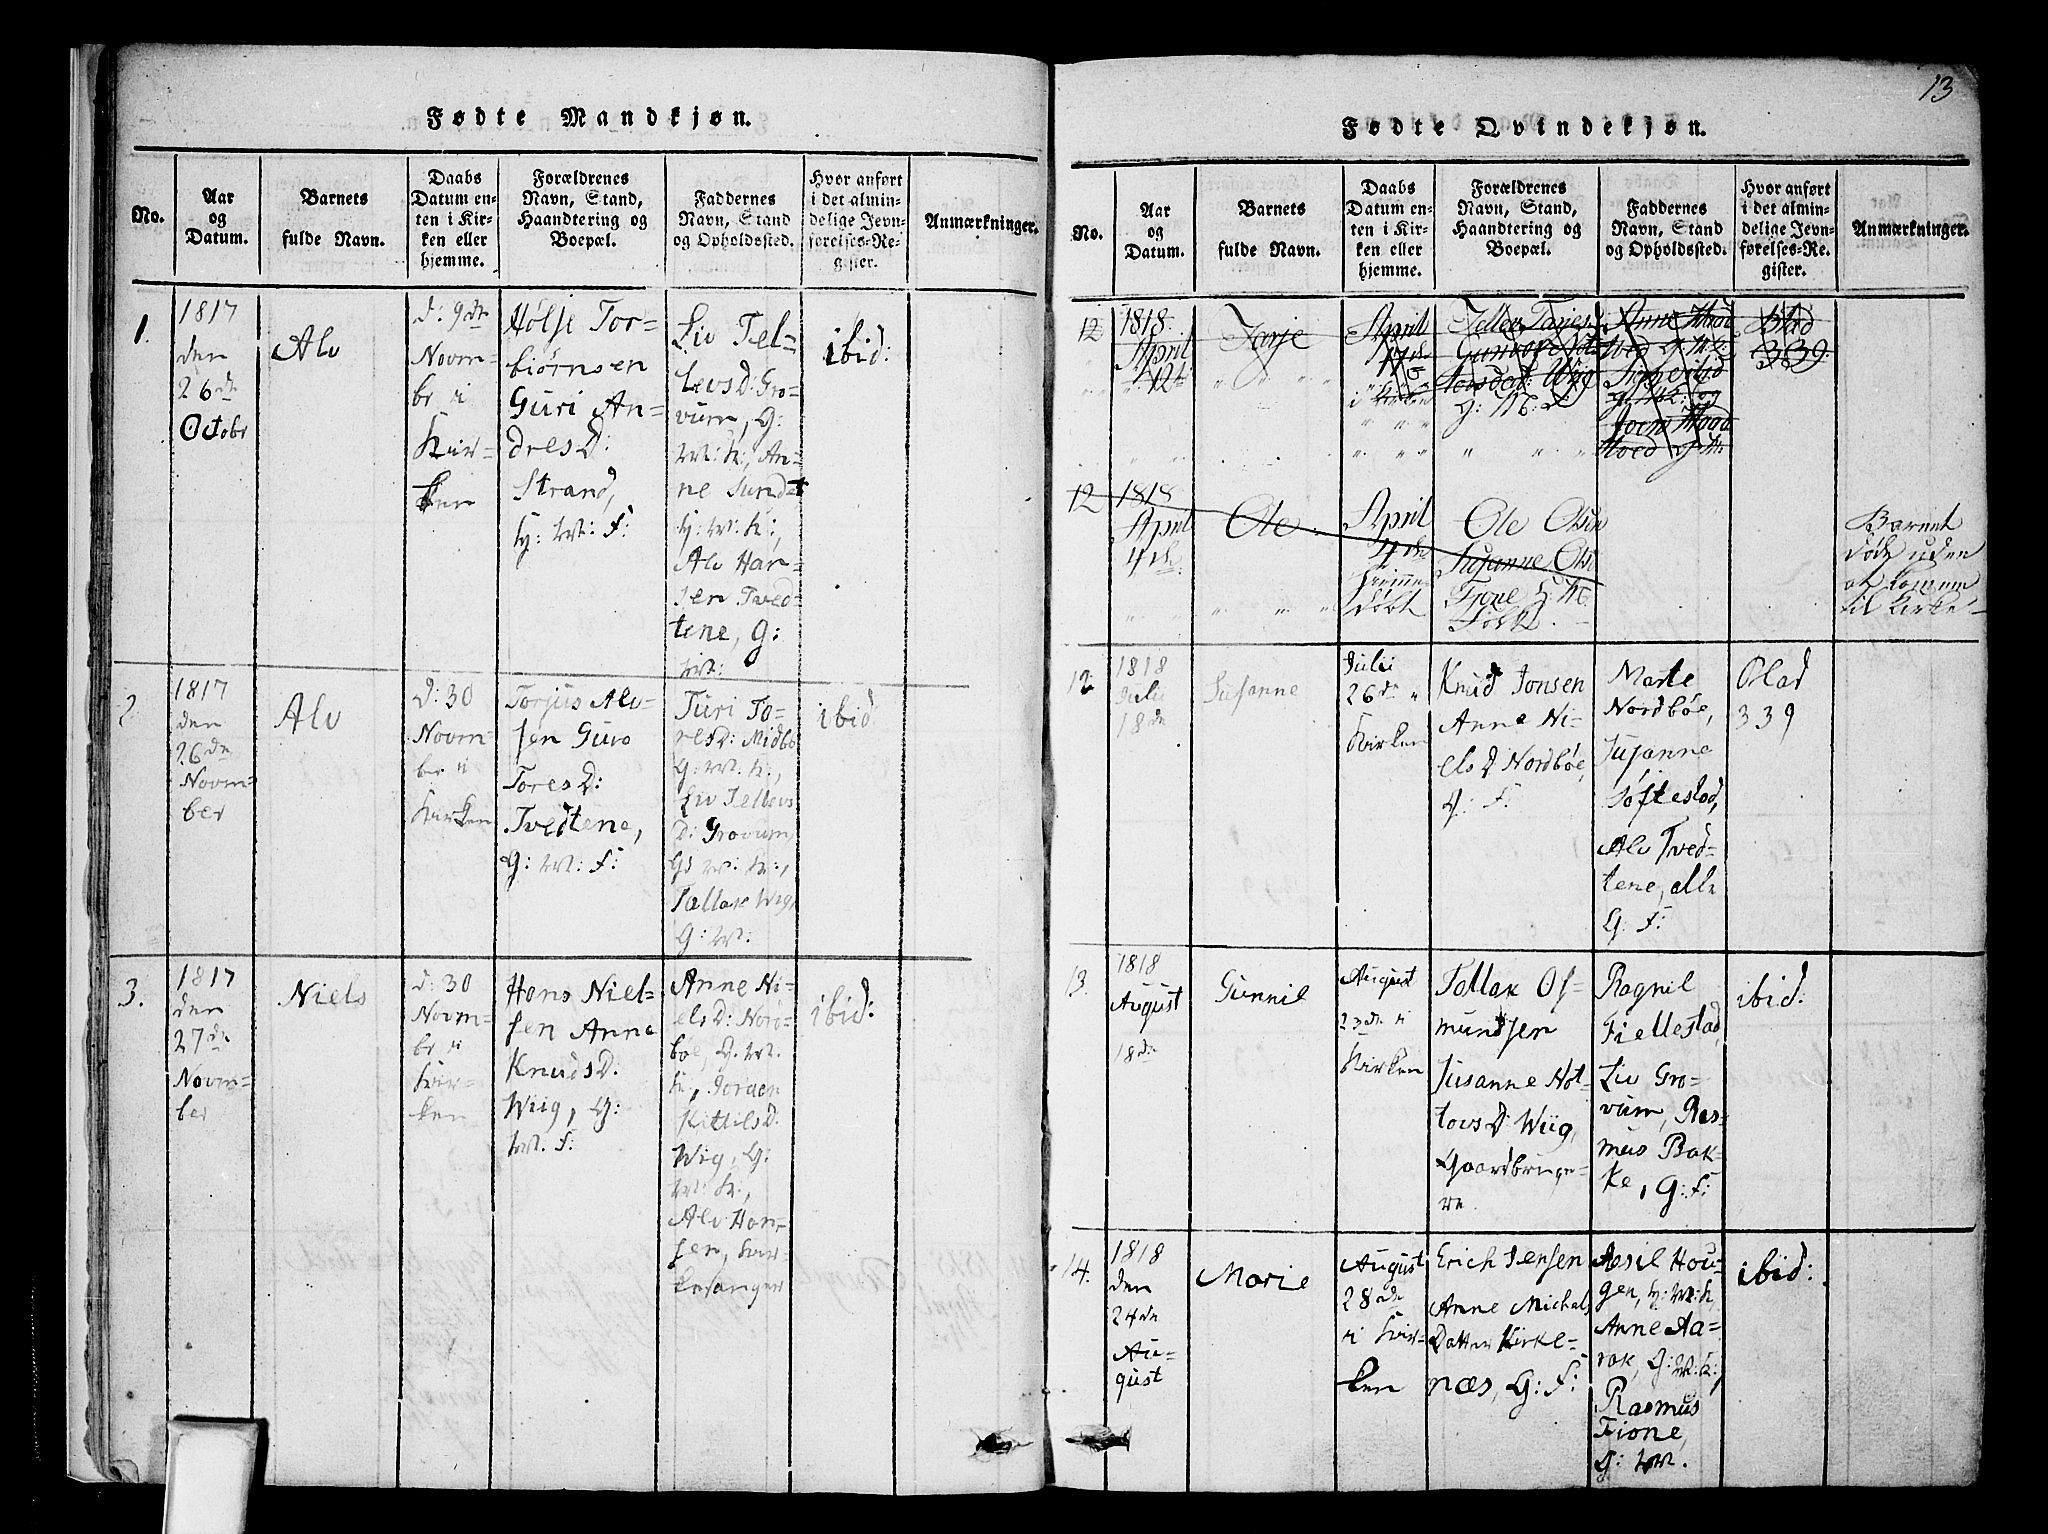 Fødte Mandkjøn.
No.
Aar
og
Datum.
Barnets
fulde Navn.
Daabs
Datum en-
ten i Kir-
ken eller
hjemme.
Forældrenes
Navn, Stand,
Haandtering og
Boepæl.
Faddernes
Navn, Stand
og Opholdssted.
Hvor anført
i det almin-
delige Jevn-
førelses-Re-
gister.
Anmærkninger.
1.
1817
den
26de
Octobr
Alv
d: 9de
Novm-
br i
Kir-
ken
Hølje Tor-
biørnsen
Guri An-
dresD:
Strand,
H: M: F:
Liv Tel-
levsD: Gro-
vum, G:
M: K:, An-
ne Sundt
H: M: K:,
Alv Han-
sen Tved-
tene, G:
M:
ibid:
2.
1817
den
26de
Novm-
ber
Alv
D: 30
Novm-
br i
Kirken
Torjus Alv-
sen Guro
ToresD:
Tvedtene,
G: M: F:
Turi To-
resD: Midbø
G: M: K:,
Liv Tellevs
D: Grovum,
G: M: K:,
Tallak Wig,
G: M:
ibid:
3.
1817
den
27de
Novm-
ber
Niels
d: 30
Novm-
br i
Kir-
ken
Hans Niel-
sen Anne
KnudsD.
Wiig, G:
M: F:
Anne Ni-
elsD: Nord-
bøe, G. M.
K:, Jorgen
KittilsD.
Wig, G:
M: K:,
Alv Han-
sen, Kir-
kesanger
ibid:
13
Fødte Qvindekjøn.
No.
Aar
og
Datum.
Barnets
fulde Navn.
Daabs
Datum en-
ten i Kir-
ken eller
hjemme.
Forældrenes
Navn, Stand,
Haandtering og
Boepæl.
Faddernes
Navn, Stand
og Opholdssted.
Hvor anført
i det almin-
delige Jevn-
førelses-Re-
gister.
Anmærkninger.
12
1818
April
12te
Tarje
April
17de
i Kirken
Tellev Tarjes.
Wiig
G: M: F
Anne
G: M:
Blad
339.
12
1818
April
4de
Ole
April
4de
hjemme
døbt
Ole Olsen
Susanne Ols
Fione H: M:
Folk.
Barnet
døde uden
at komme
til Kirke
12
1818
Julii
18de
Susanne
Julii
26de
Kirken
Knud Jonsen
Anne Ni-
elsD Nordbøe,
G: F:
Marte
Nordbøe,
Susanne
Softestad,
Alv Tved-
tene, alle
G: F:
Blad
339
13.
1818
August
18de
Gunnil
August
23de i
Kirken
Tallak Os-
mundsen
Susanne Not-
tovsD: Wiig,
Gaardbruge-
re.
Ragnil
Fiellestad,
Liv Gro-
vum, Ras-
mus Bak-
ke, G: F:
ibid.
14.
1818
den
24de
Au-
gust
Marie
August
28de
i Kir-
ken
Erich Jensen
Anne Michals
Datter Kirke-
næs, G: F:
Assil Hou-
gen, H: M: K,
Anne Aa-
rak, G: M: K:,
Rasmus
Fione,
G: M.
ibid: